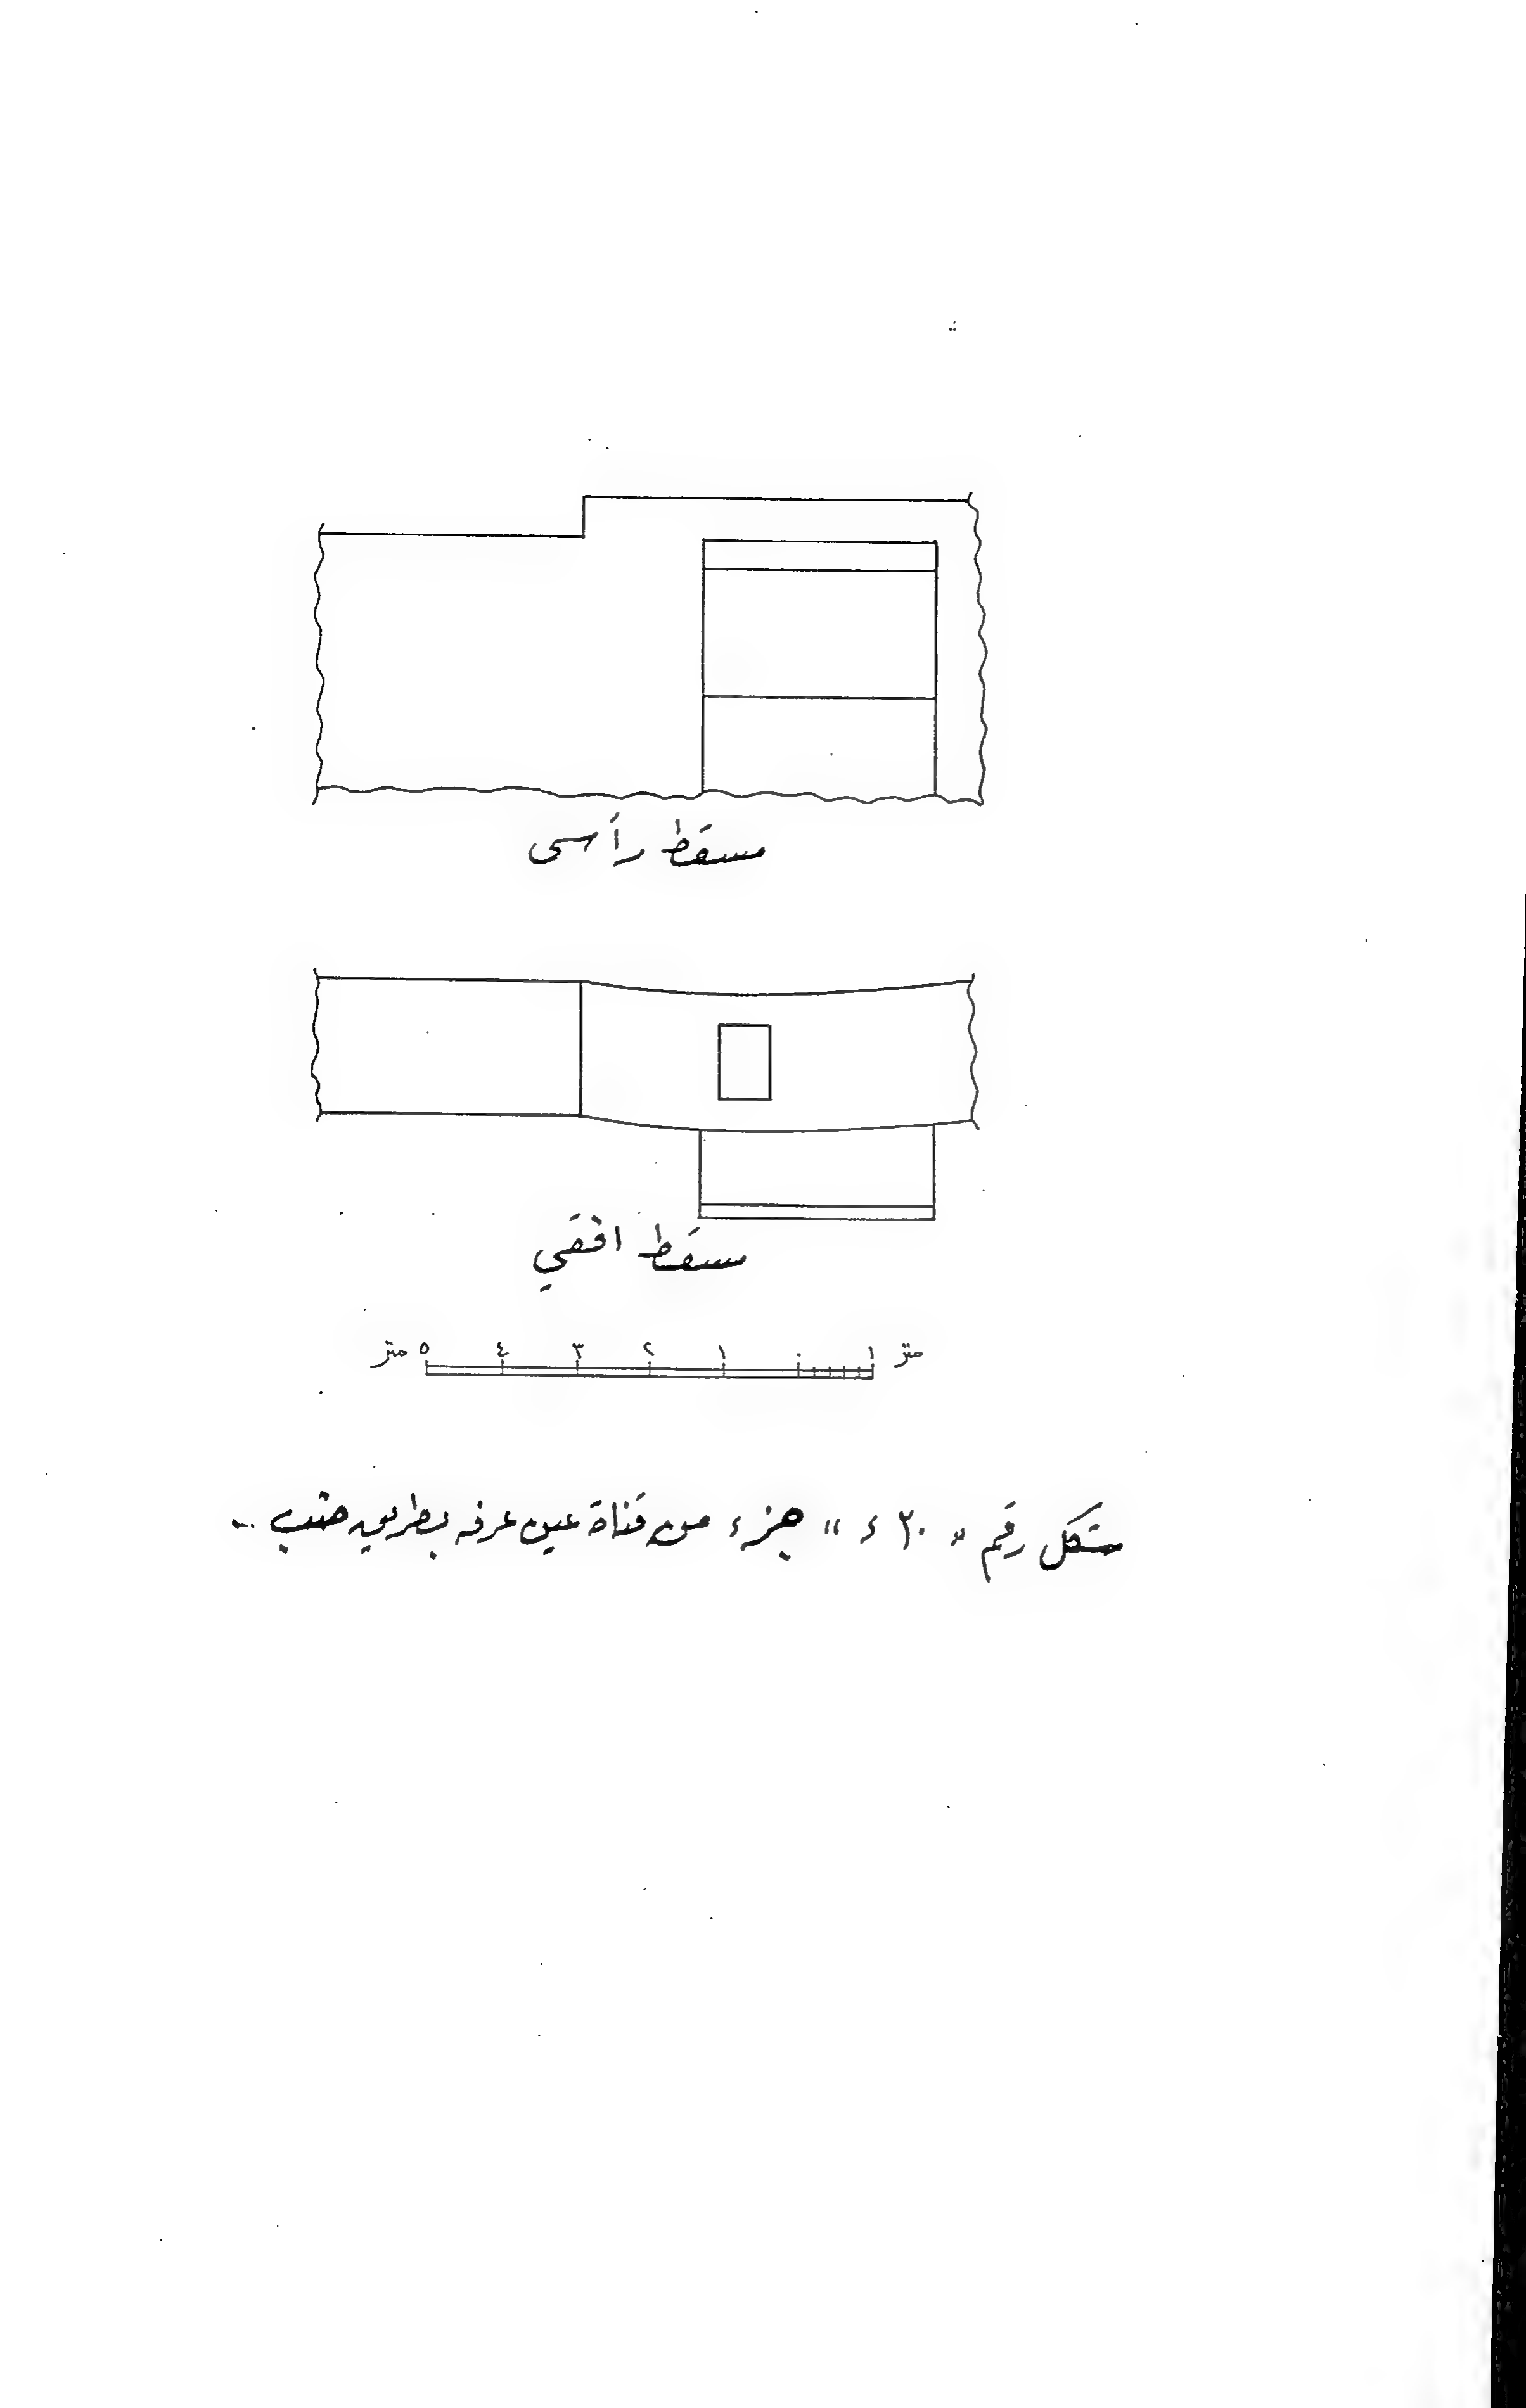 مسقط رأسى
مسقط افقي
متر ٥ ٤ ٣ ٢ ١ ٠ ١ متر
شكل رقم « ٣٠ ء » جزء من قناة عين عرفه بطريق ضب ..